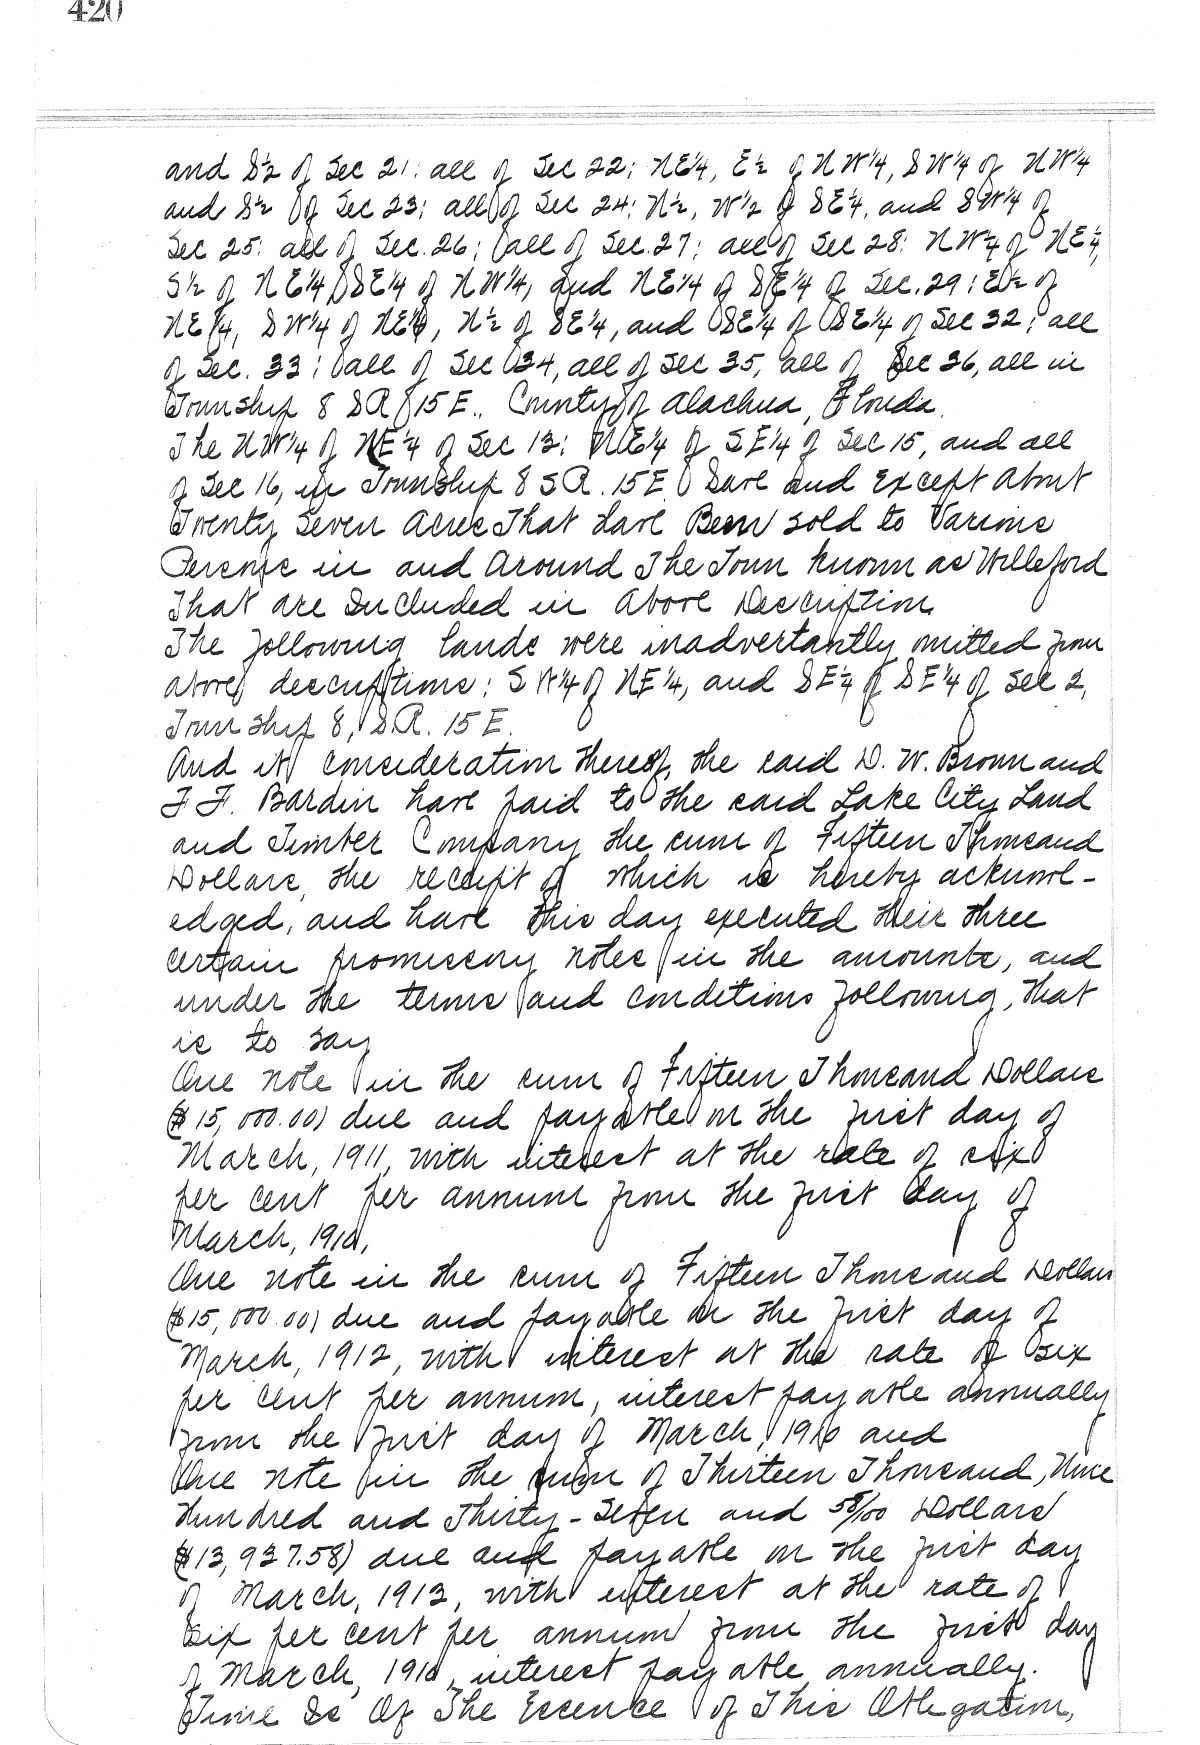 420
and S½ of Sec 21; all of Sec 22; NE¼, E½ of NW¼, SW¼ of NW¼
and S½ of Sec 23; all of Sec 24; N½, W½ of SE¼, and SW¼ of
Sec 25; all of Sec. 26; all of Sec. 27; all of Sec 28; NW¼ of NE¼,
S½ of NE¼, SE¼ of NW¼, and NE¼ of SE¼ of Sec. 29; E½ of
NE¼, SW¼ of NE¼, N½ of SE¼, and SE¼ of SE¼ of Sec 32; all
of Sec. 33; all of Sec 34, all of Sec 35, all of Sec 36, all in
Township 8 S R 15 E., County of Alachua, Florida.
The NW¼ of NE¼ of Sec 13; NE¼ of SE¼ of Sec 15, and all
of Sec 16, in Township 8 S R. 15 E. Save and Except About
Twenty Seven Acres That Have Been sold to Various
Persons in and Around The Town known as Willeford
That are Included in Above Description.
The following lands were inadvertantly omitted from
above descriptions; SW¼ of NE¼, and SE¼ of SE¼ of Sec 2,
Township 8, S R. 15 E.
And in consideration thereof, the said D. W. Brown and
F F. Bardin have paid to the said Lake City Land
and Timber Company the sum of Fifteen Thousand
Dollars, the receipt of which is hereby acknowl-
edged, and have this day executed their three
certain promissory notes in the amounts, and
under the terms and conditions following, that
is to say
One note in the sum of Fifteen Thousand Dollars
($15,000.00) due and payable on the first day of
March, 1911, with interest at the rate of six
per cent per annum from the first day of
March, 1910,
One note in the sum of Fifteen Thousand Dollars
($15,000.00) due and payable on the first day of
March, 1912, with interest at the rate of six
per cent per annum, interest payable annually
from the first day of March, 1910 and
One note in the sum of Thirteen Thousand, Nine
Hundred and Thirty-Seven and 58/100 Dollars
($13,937.58) due and payable on the first day
of March, 1913, with interest at the rate of
six per cent per annum from the first day
of March, 1910, interest payable annually.
Time Is Of The Essence of This Obligation,